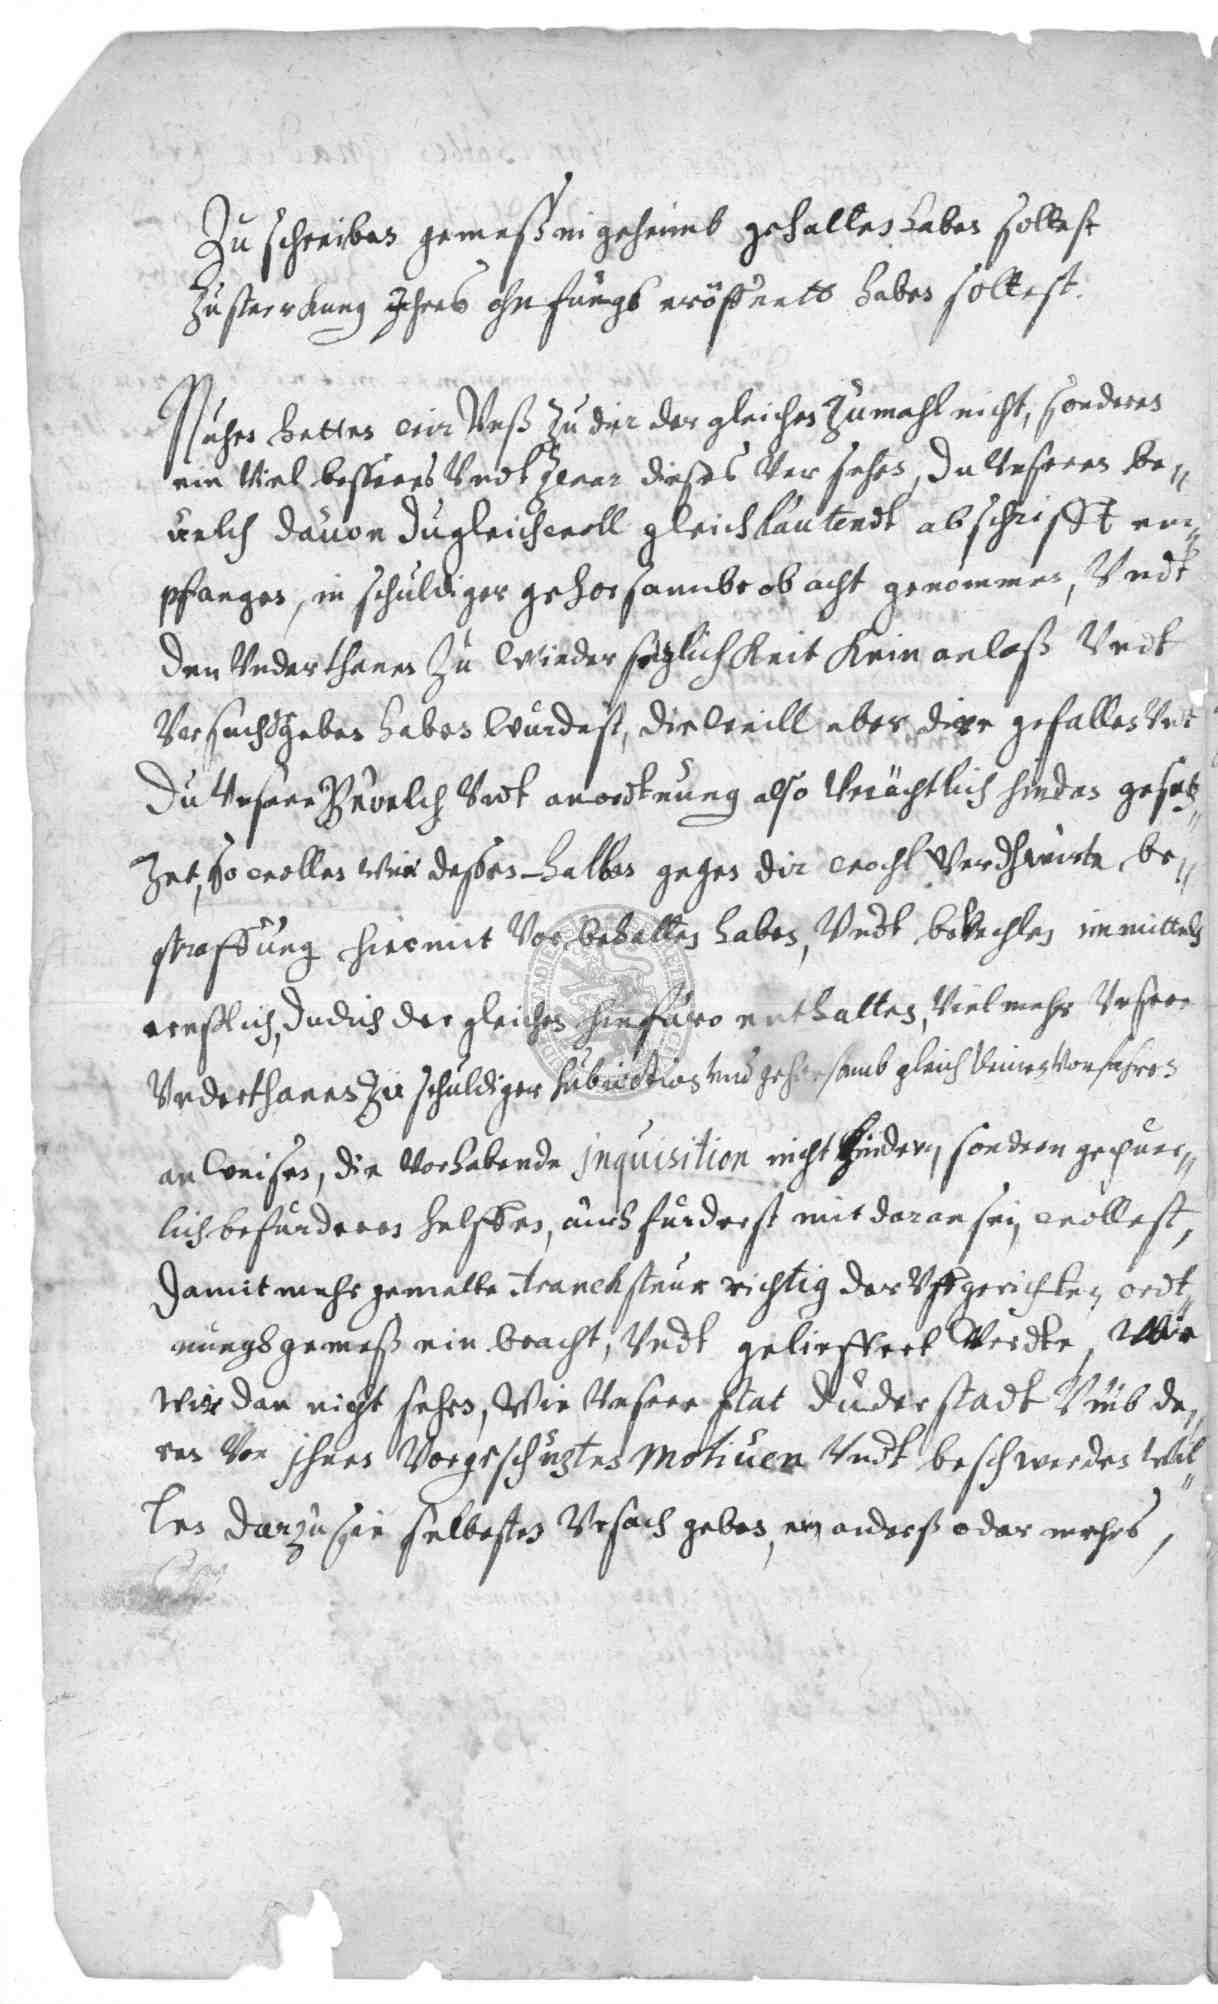 Zu schreiben gemeß in geheimb gehalten haben soltest
Zu sterckung ihres ohnfuegs eröffnett haben soltest.
Nuhn hetten wir Unß zu dir der gleichen zumahl nicht, sonderen
ein Viel besseres Undt zwar dieses Versehen, du Unseren be„
uelch dauon du gleichwoll gleichlautendt abschrifft em„
pfangen, in schuldiger gehorsamb obacht genommen, Undt
den Underthanen zu wiedersezlichkeit kein anlaß Undt
Vrsach geben haben wurdest, dieweill aber dir gefallen Undt
du Unsere Bevelch Undt anordtnung also Verächtlich hindan gesetz„
zet, so wollen wir dessen halben gegen dir wohl Verdhiente be„
straffung hiermit Vorbehalten haben, Undt bevehlen immittels
ernstlich, du dich der gleichen hinfuro enthalten, Vielmehr Unsere
Underthanen zu schuldiger subiection und gehorsamb gleich deinen Vorfahren
anweisen, die Vorhabende inquisition nicht hindern, sondern gepuer„
lich befurderen helffen, auch furderst mit daran sein wollest,
damit mehr gemelte trancksteur richtig der Uffgerichten ordt„
nungs gemeß ein bracht, Undt gelieffert werdte, Wie
wir dan nicht sehen, wie Unsere stat Duderstadt Umb de„
ren Von ihnen Vorgeschützten Motiuen Undt beschwerden wil„
len darzu sie selbesten Vrsach geben, ein anderß oder mehrers,